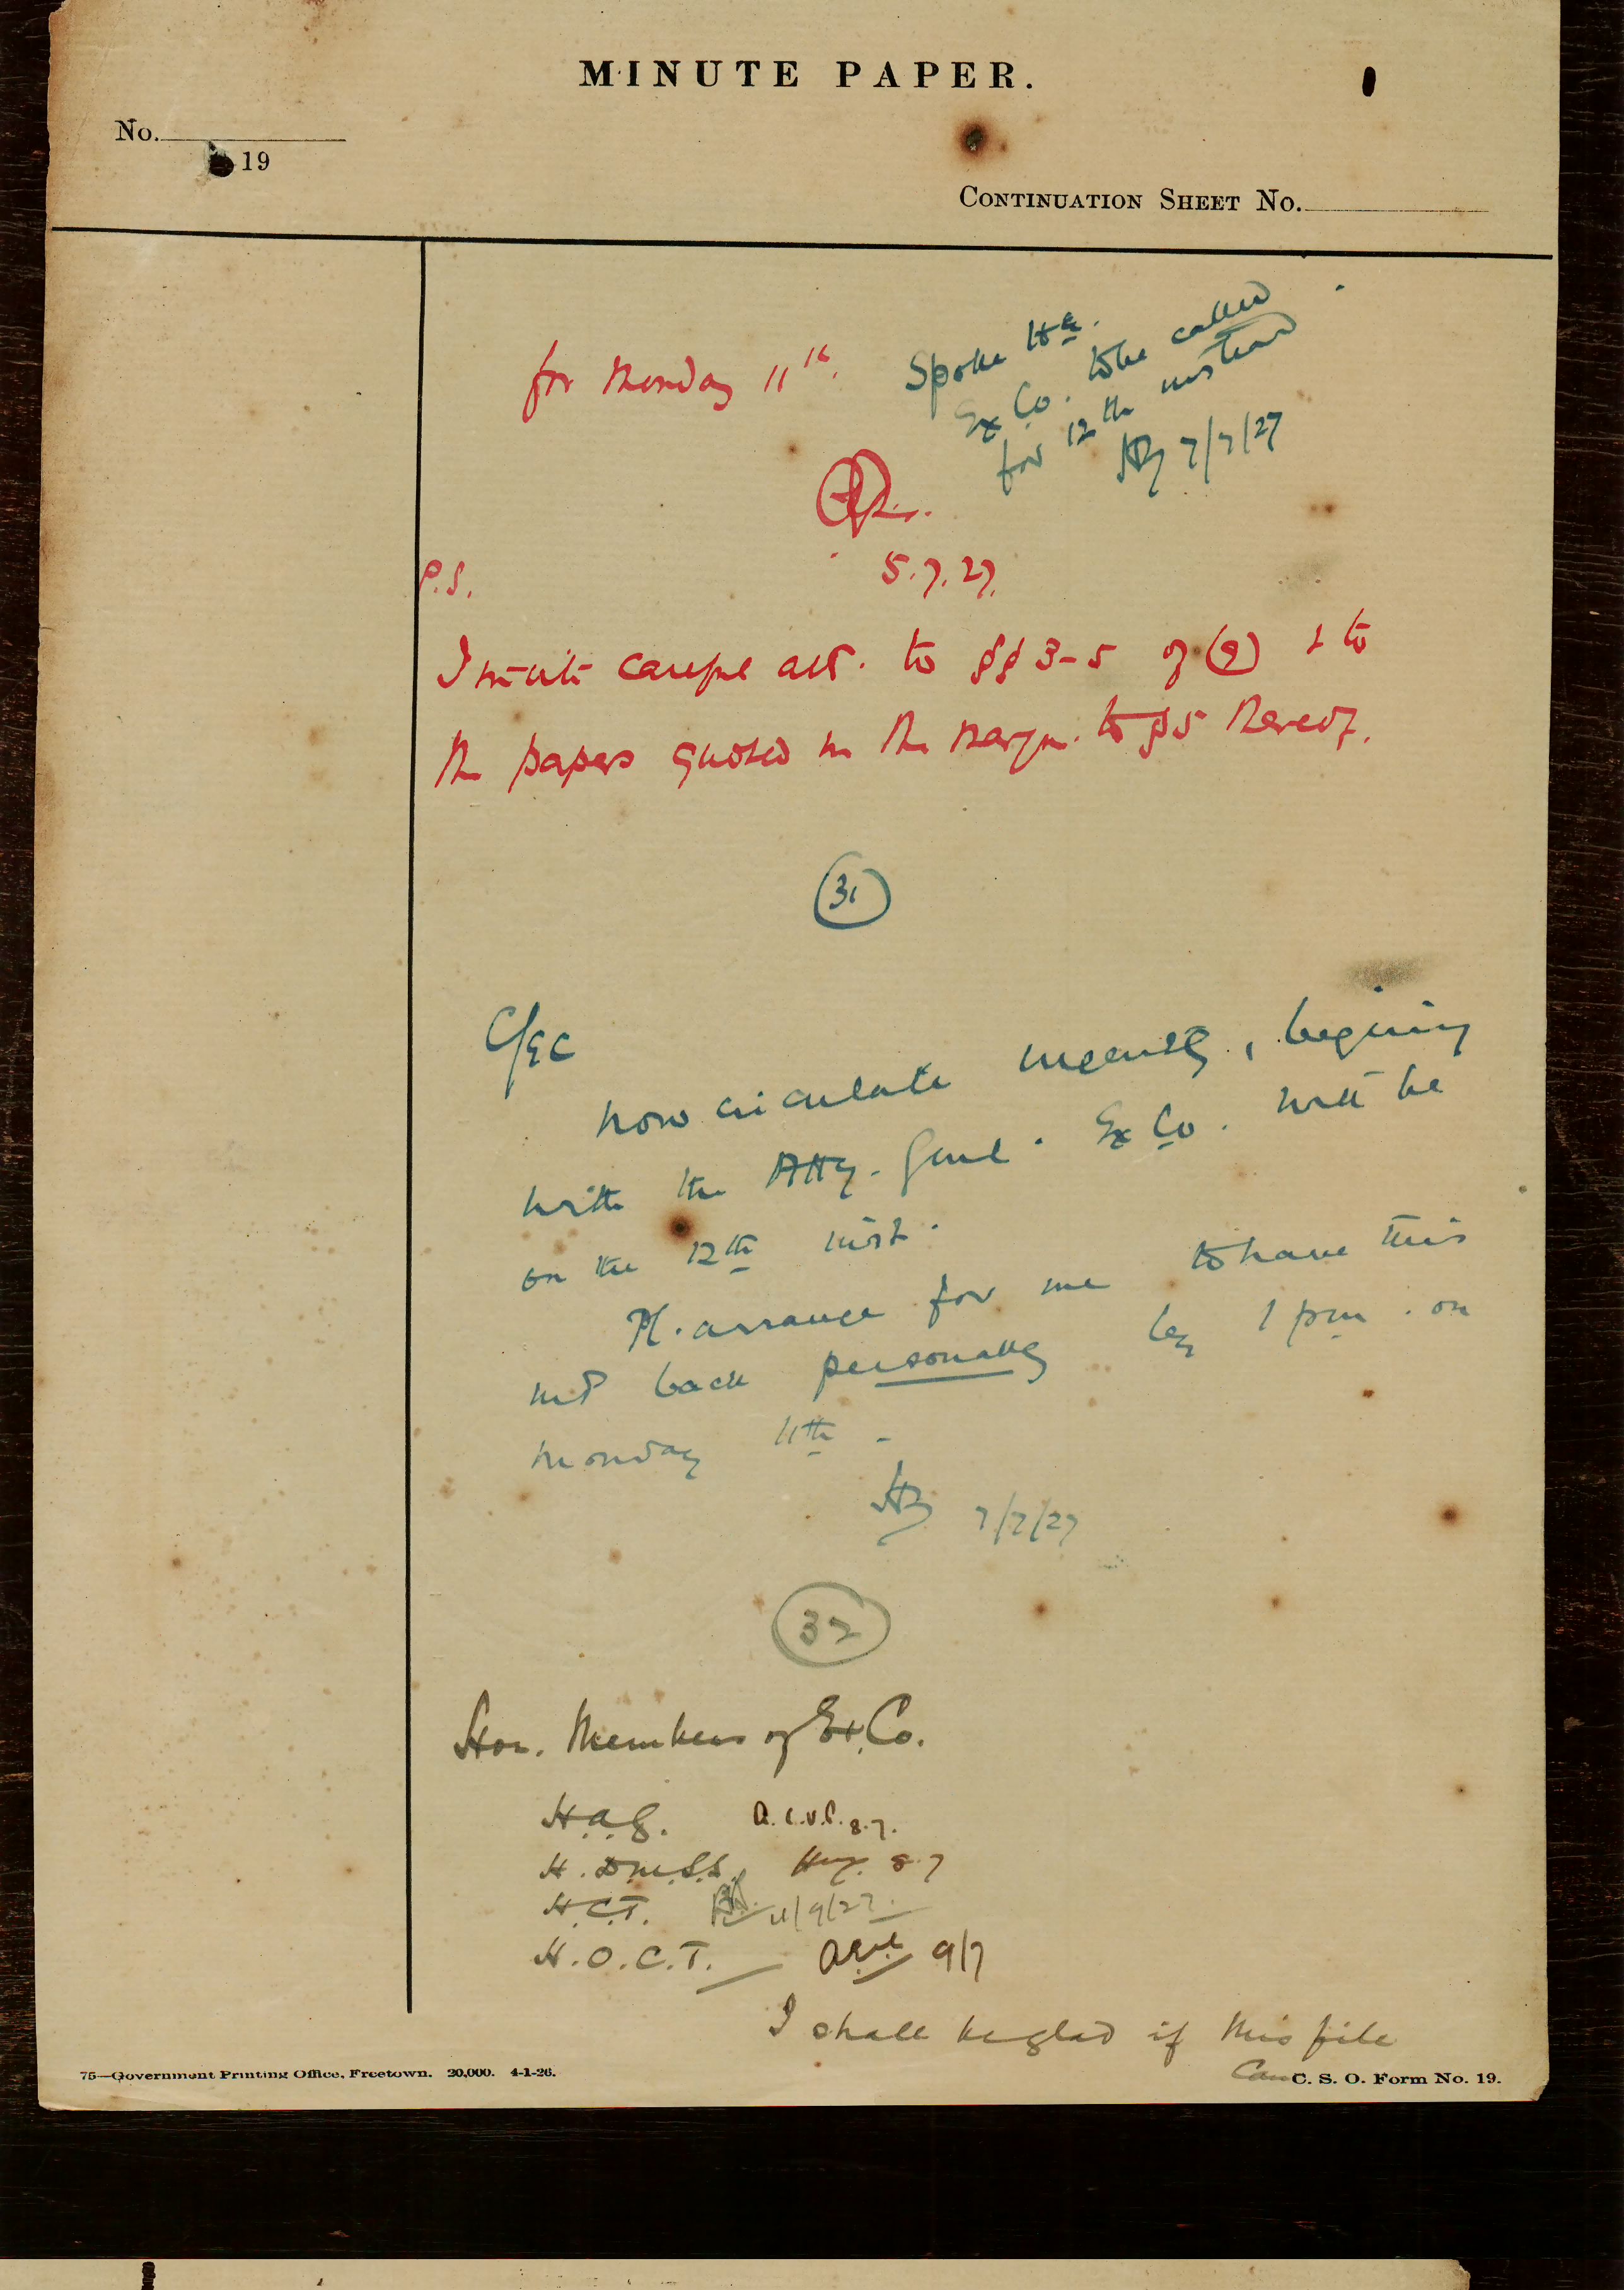 MINUTE PAPER.
No.
19
CONTINUATION SHEET No.
for Monday 11th.
Spoke H.E.
Ex Co. to be called
for 12th instead
7/7/27
5.7.27.
P.S.
I invite careful att. to §§ 3-5 of (9) & to
the papers quoted in the margin to §5 thereof.
31
C/EC
Now circulate urgently, begining
with the Atty. Genl. Ex Co. will be
on the 12th inst.
Pl. arrange for me to have this
back personally by 1 pm. on
Monday 11th -
7/7/27
32
Hon. Members of Ex. Co.
H.A.G. 8.7.
H.D.M.S.S. 8.7
H.C.T. 11/9/27.
H.O.C.T. 9/7
I shall be glad if this file
can
75—Government Printing Office, Freetown. 20,000. 4-1-26.
C. S. O. Form No. 19.